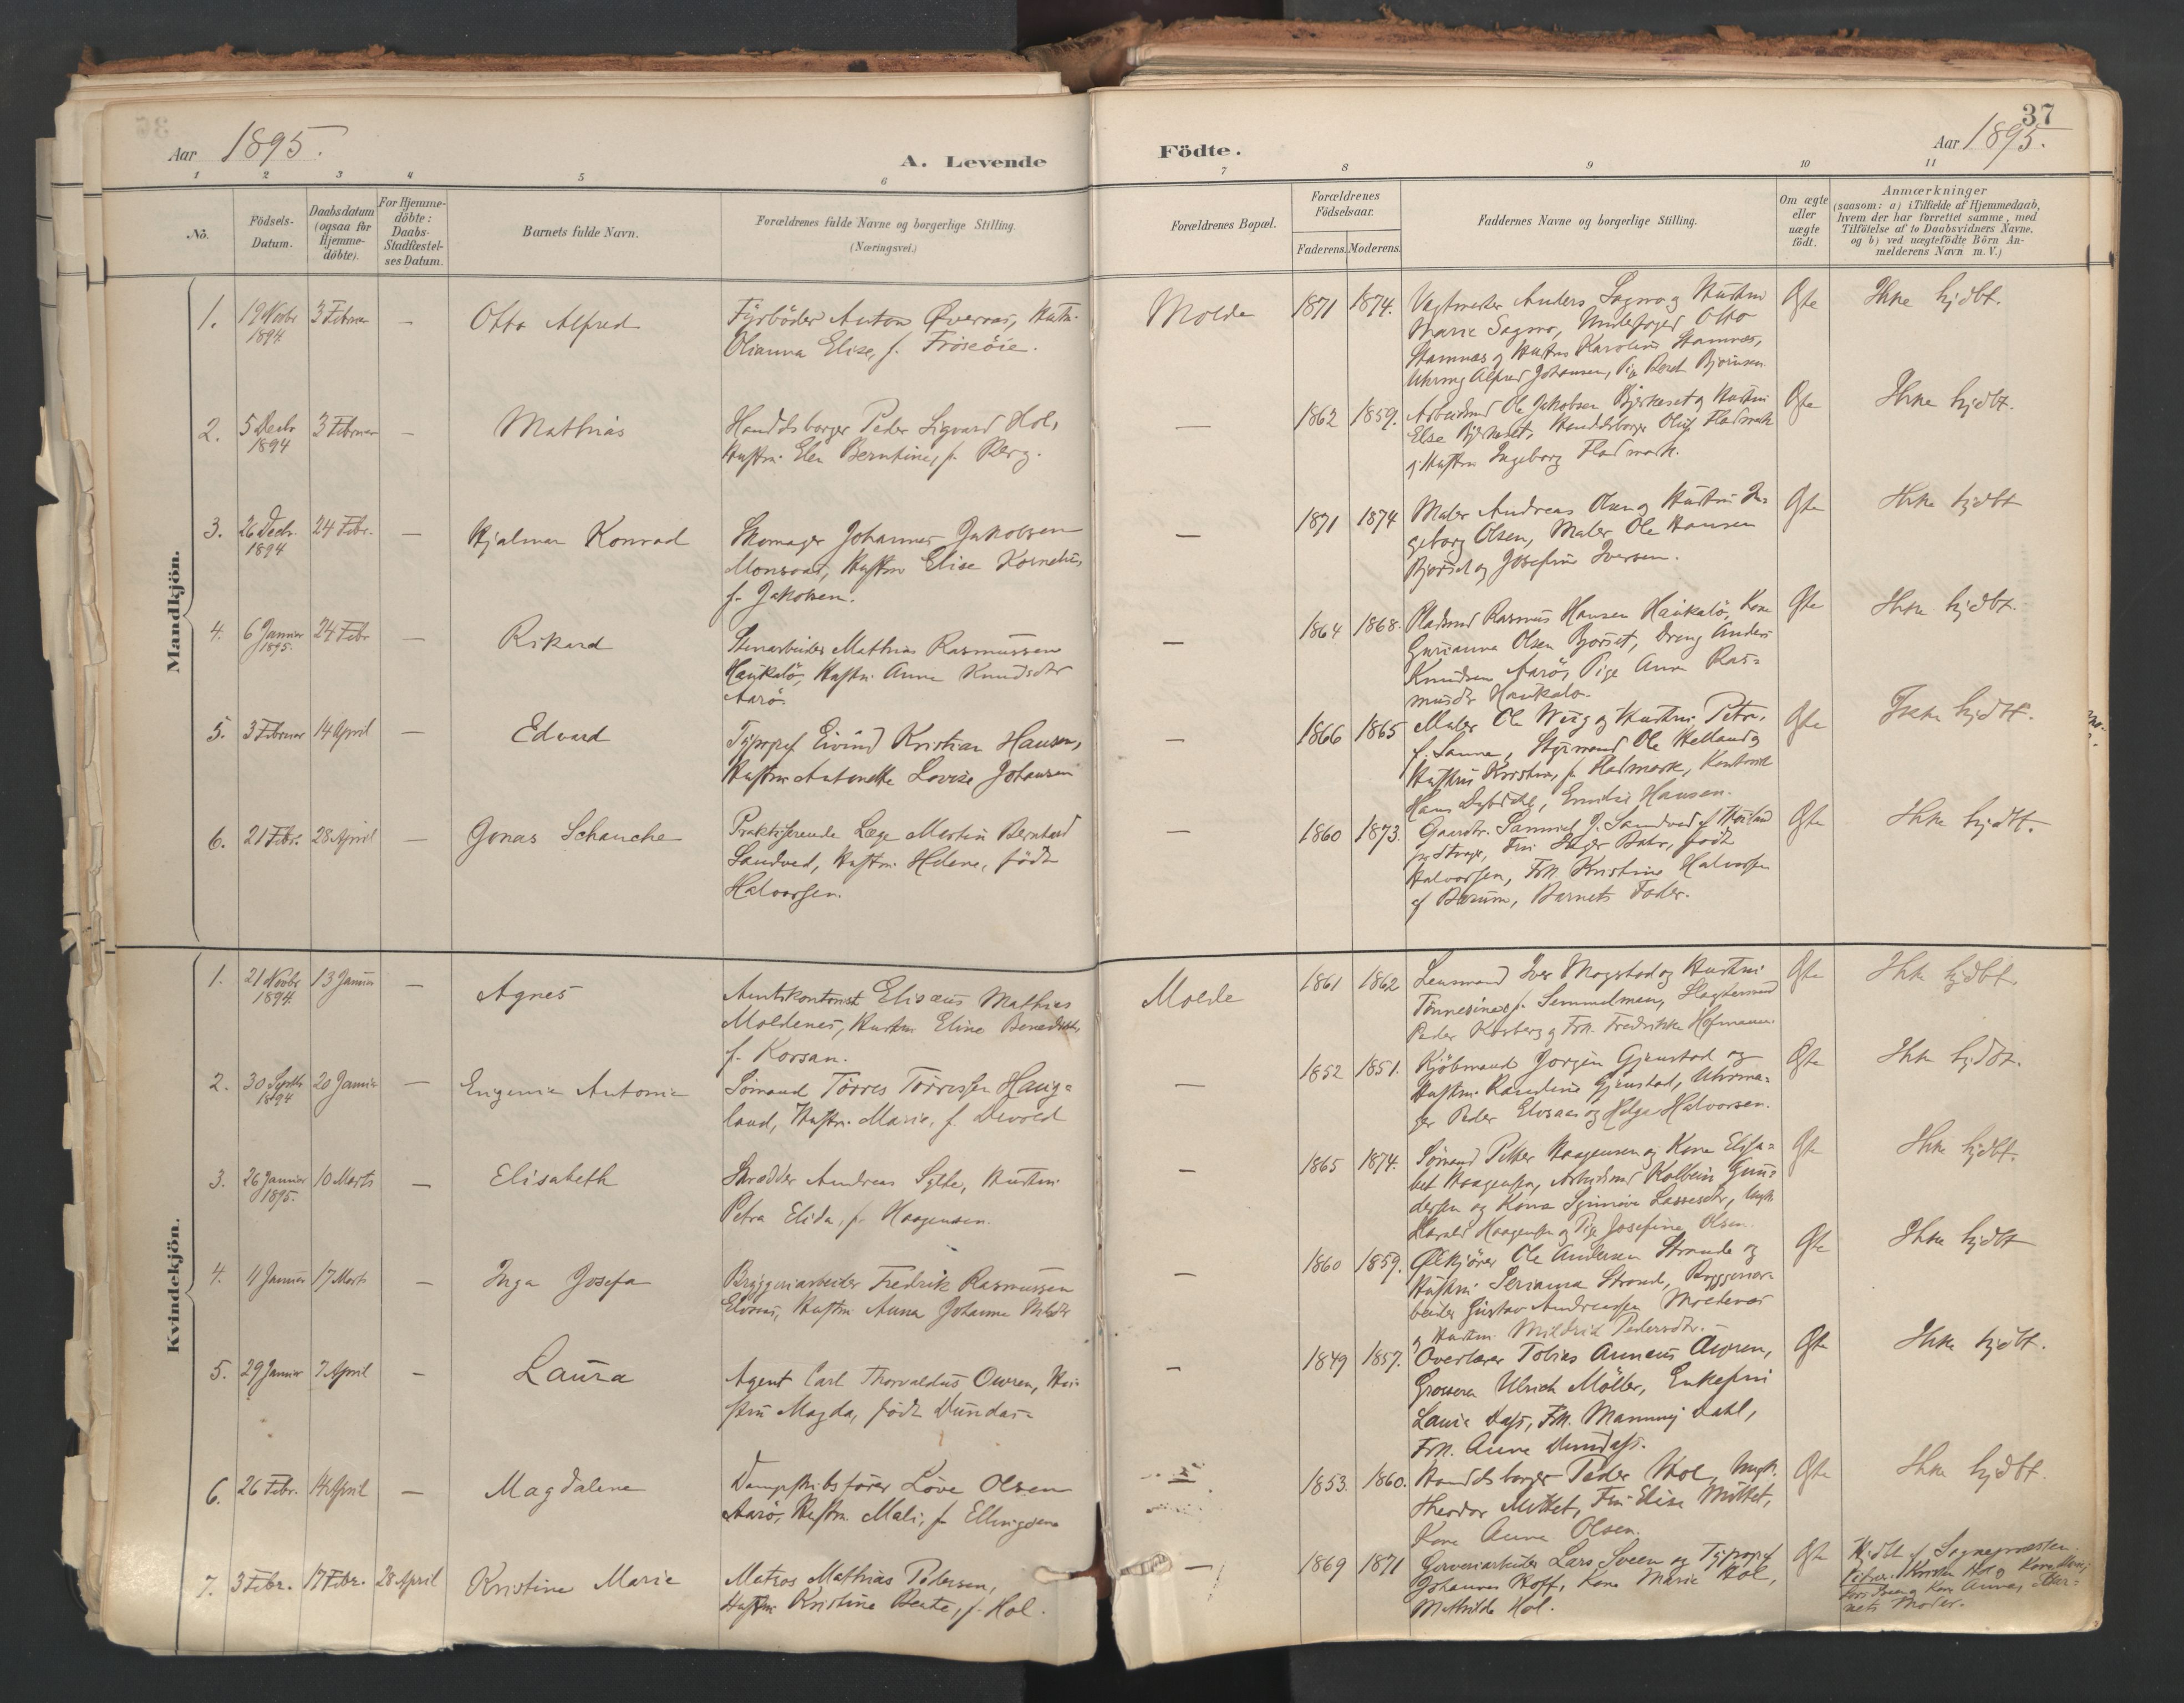 37
Aar 1895. A. Levende Födte. Aar 1895.
1 2 3 4 5 6 7 8 9 10 11
No.
Födsels-
Datum.
Daabsdatum
(ogsaa for
Hjemme-
döbte).
For Hjemme-
döbte:
Daabs-
Stadfæstel-
ses Datum.
Barnets fulde Navn.
Forældrenes fulde Navne og borgerlige Stilling.
(Næringsvei.)
Forældrenes Bopæl.
Forældrenes
Födselsaar.
Faderens. Moderens.
Faddernes Navne og borgerlige Stilling.
Om ægte
eller
uægte
födt.
Anmærkninger
(saasom: a) i Tilfælde af Hjemmedaab,
hvem der har forrettet samme, med
Tilföielse af to Daabsvidners Navne,
og b) ved uægtefödte Börn An-
melderens Navn m. V.)
Mandkjön.
1. 19 Novbr 1894 3 Februar — Otto Alfred
Fyrböder Anton Øveraas, Hustru
Olianna Elise, f. Fröseöie.
Molde 1871 1874.
Vagtmester Anders Sagmo og Hustru
Marie Sagmo, Underfoged Otto
Stamnæs og Hustru Karoline Stamnæs,
Alfred Johansen, Pige Berit Bjørnsen
Ægte Ikke hjdbt.
2. 5 Decbr 1894 3 Februar — Mathias
Handelsborger Peder Sigvard Hol,
Hustru Elen Berntine, f. Berg.
— 1862 1859.
Arbeidsmd Ole Jakobsen Bjerkeset og Hustru
Else Bjerkeset, Handelsborger Oluf Fladmark
og Hustru Ingeborg Fladmark.
Ægte Ikke hjdbt.
3. 26 Decbr. 1894 24 Febr. — Hjalmar Konrad
Skomager Johannes Jakobsen
Monsaas, Hustru Elise Kornelia,
f. Jakobsen.
— 1871 1874
Maler Andreas Olsen og Hustru In-
geborg Olsen, Maler Ole Hansen
Bjørset og Josefine Iversen.
Ægte Ikke hjdbt
4. 6 Januar 1895. 24 Febr — Rikard
Stenarbeider Mathias Rasmussen
Haukabö, Hustru Anna Knudsdtr
Aarö.
— 1864 1868.
Pladsmd Rasmus Hansen Haukabö, Kone
Gurianna Olsen Bjørset, Dreng Anders
Knudsen Aarö, Pige Anna Ras-
musdtr Haukabö.
Ægte Ikke hjdbt.
5. 3 Februar 14 April — Edvard
Typograf Eivind Kristian Hansen,
Hustru Antonette Lovise Johansen
— 1866 1865
Maler Ole Wiig og Hustru Petra,
f. Sanna, Styrmand Ole Helland og
Hustru Kirstine, f. Fladmark, Kontorist
Hans Dybdahl, Emilie Hansen.
Ægte Ikke hjdbt.
6. 21 Febr. 28 April — Jonas Schanche
Praktiserende Læge Martin Bernhard
Sandved, Hustru Helene, födt
Halvorsen.
— 1860 1873.
Gaardbr. Samuel J. Sandved af Höiland
Fru Inger Bahr, födt
Halvorsen, Frk Kristine Halvorsen
af Bærum, Barnets Fader.
Ægte Ikke hjdbt.
Kvindekjön.
1. 21 Novbr 1894. 13 Januar — Agnes
Amtskontorist Elisæus Mathias
Moldenes, Hustru Eline Benedikte,
f. Korsan.
Molde 1861 1862
Lensmand Iver Mogstad og Hustru
Tönnesine f. Semmelman, Slagtersvend
Peder Korsberg og Frk. Fredrikke Hofmann.
Ægte Ikke hjdbt.
2. 30 Septbr 1894 20 Januar — Eugenie Antonie
Sömand Törres Törressen Haug-
land, Hustru Marie, f. Devold
— 1852 1851.
Kjöbmand Jørgen Gjenstad og
Hustru Randine Gjenstad, Uhrma-
ger Peder Elvsaas og Helga Halvorsen.
Ægte Ikke hjdbt.
3. 26 Januar 1895. 10 Marts — Elisabeth
Skrædder Andreas Sylte, Hustru
Petra Elida, f. Haagensen.
— 1865 1874.
Sömand Petter Haagensen og Kone Elisa-
bet Haagensen, Arbeidsmd Kolbein Gun-
dersen og Kone Synnöve Lassesdtr, Ungk.
Harald Haagensen og Pige Josefine Olsen.
Ægte Ikke hjdbt.
4. 4 Januar 17 Marts — Inga Josefa
Bryggeriarbeider Fredrik Rasmussen
Elvsaas, Hustru Anna Johanna
— 1860 1859.
Ølkjörer Ole Andersen Strande og
Hustru Serianna Strand, Bryggeriar-
beider Gustav Andreassen Moldenæs
og Hustru Mildrid Pedersdtr. —
Ægte Ikke hjdbt
5. 29 Januar 7 April — Laura
Agent Carl Thorvaldus Owren, Hu-
stru Magda, födt Dundas-
— 1849 1857.
Overlærer Tobias Anneus Owren,
Grosserer Ulrich Möller, Enkefru
Laura Dass, Frk. Dahl,
Frk. Anna Dundass.
Ægte Ikke hjdbt.
6. 26 Febr. 14 April — Magdalene
Dampskibsförer Löve Olsen
Aarö, Hustru Mali, f. Ellingsen
— 1853. 1860.
Handelsborger Peder Hol, Ungk.
Theodor Mittet, Fru Elise Mittet,
Kone Anna Olsen.
Ægte Ikke hjdbt.
7. 3 Febr. 17 Febr. 28 April Kristine Marie
Matros Mathias Pedersen,
Hustru Kristine Beate, f. Hol.
— 1869 1871
Garveriarbeider Lars Sveen og Typograf
Johannes Hoff, Kone Marie Hol,
Mathilde Hol.
Ægte Hjdbt af Sognepræsten.
Kone Anna, Bar-
nets Moder.